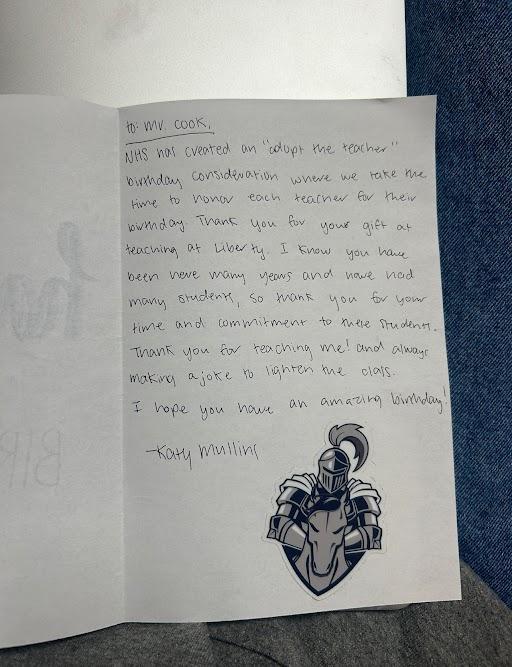 to: Mr. Cook,
NHS has created an "adopt the teacher"
birthday consideration where we take the
time to honor each teacher for their
birthday. Thank you for your gift at
teaching at Liberty. I know you have
been here many years and have had
many students, so thank you for your
time and commitment to these students.
Thank you for teaching me! and always
making a joke to lighten the class.
I hope you have an amazing birthday!
-Katy Mullins